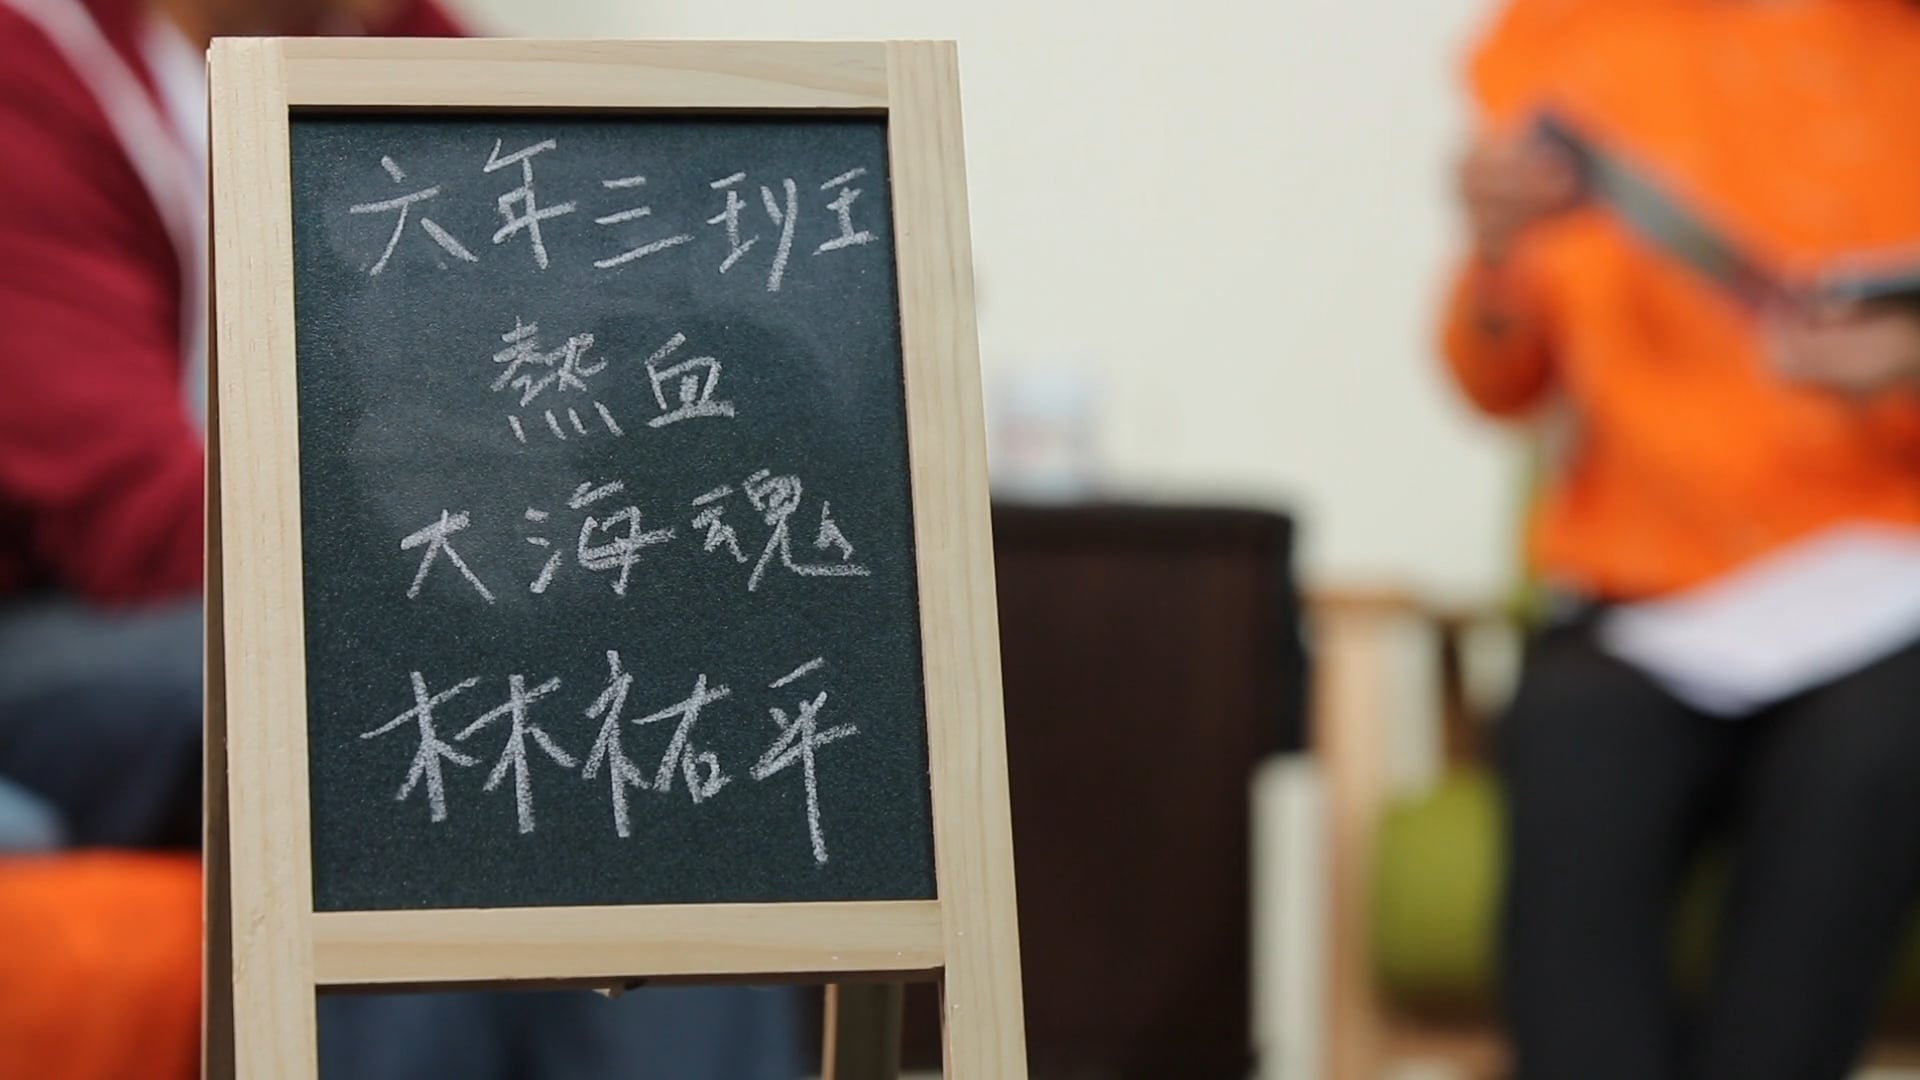 六年三班
熱血
大海魂
林祐平